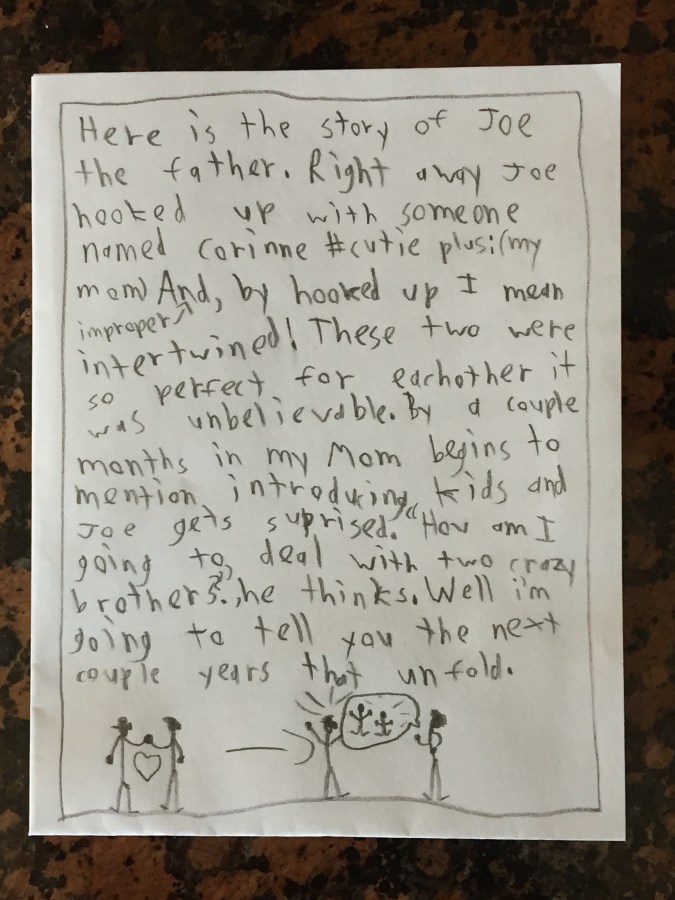 Here is the story of Joe
the father. Right away Joe
hooked up with someone
named Corinne #cutie plus!(my
mom) And, by hooked up I mean
improper
intertwined! These two were
so perfect for eachother it
was unbelievable. By a couple
months in my Mom begins to
mention introducing kids and
Joe gets suprised. "How am I
going to deal with two crazy
brothers?", he thinks. Well i'm
going to tell you the next
couple years that unfold.